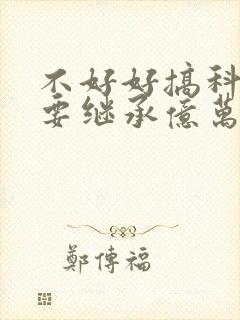 不好好搞科
要继承億萬
鄭傳福